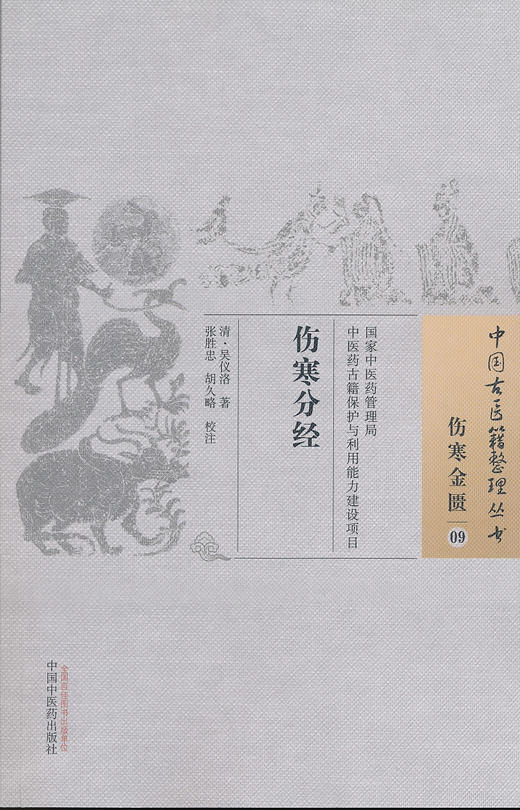 中国古医籍整理丛书
伤寒金匮
09
国家中医药管理局
中医药古籍保护与利用能力建设项目
伤寒分经
清·吴仪洛 著
张胜忠 胡久略 校注
全国百佳图书出版单位
中国中医药出版社